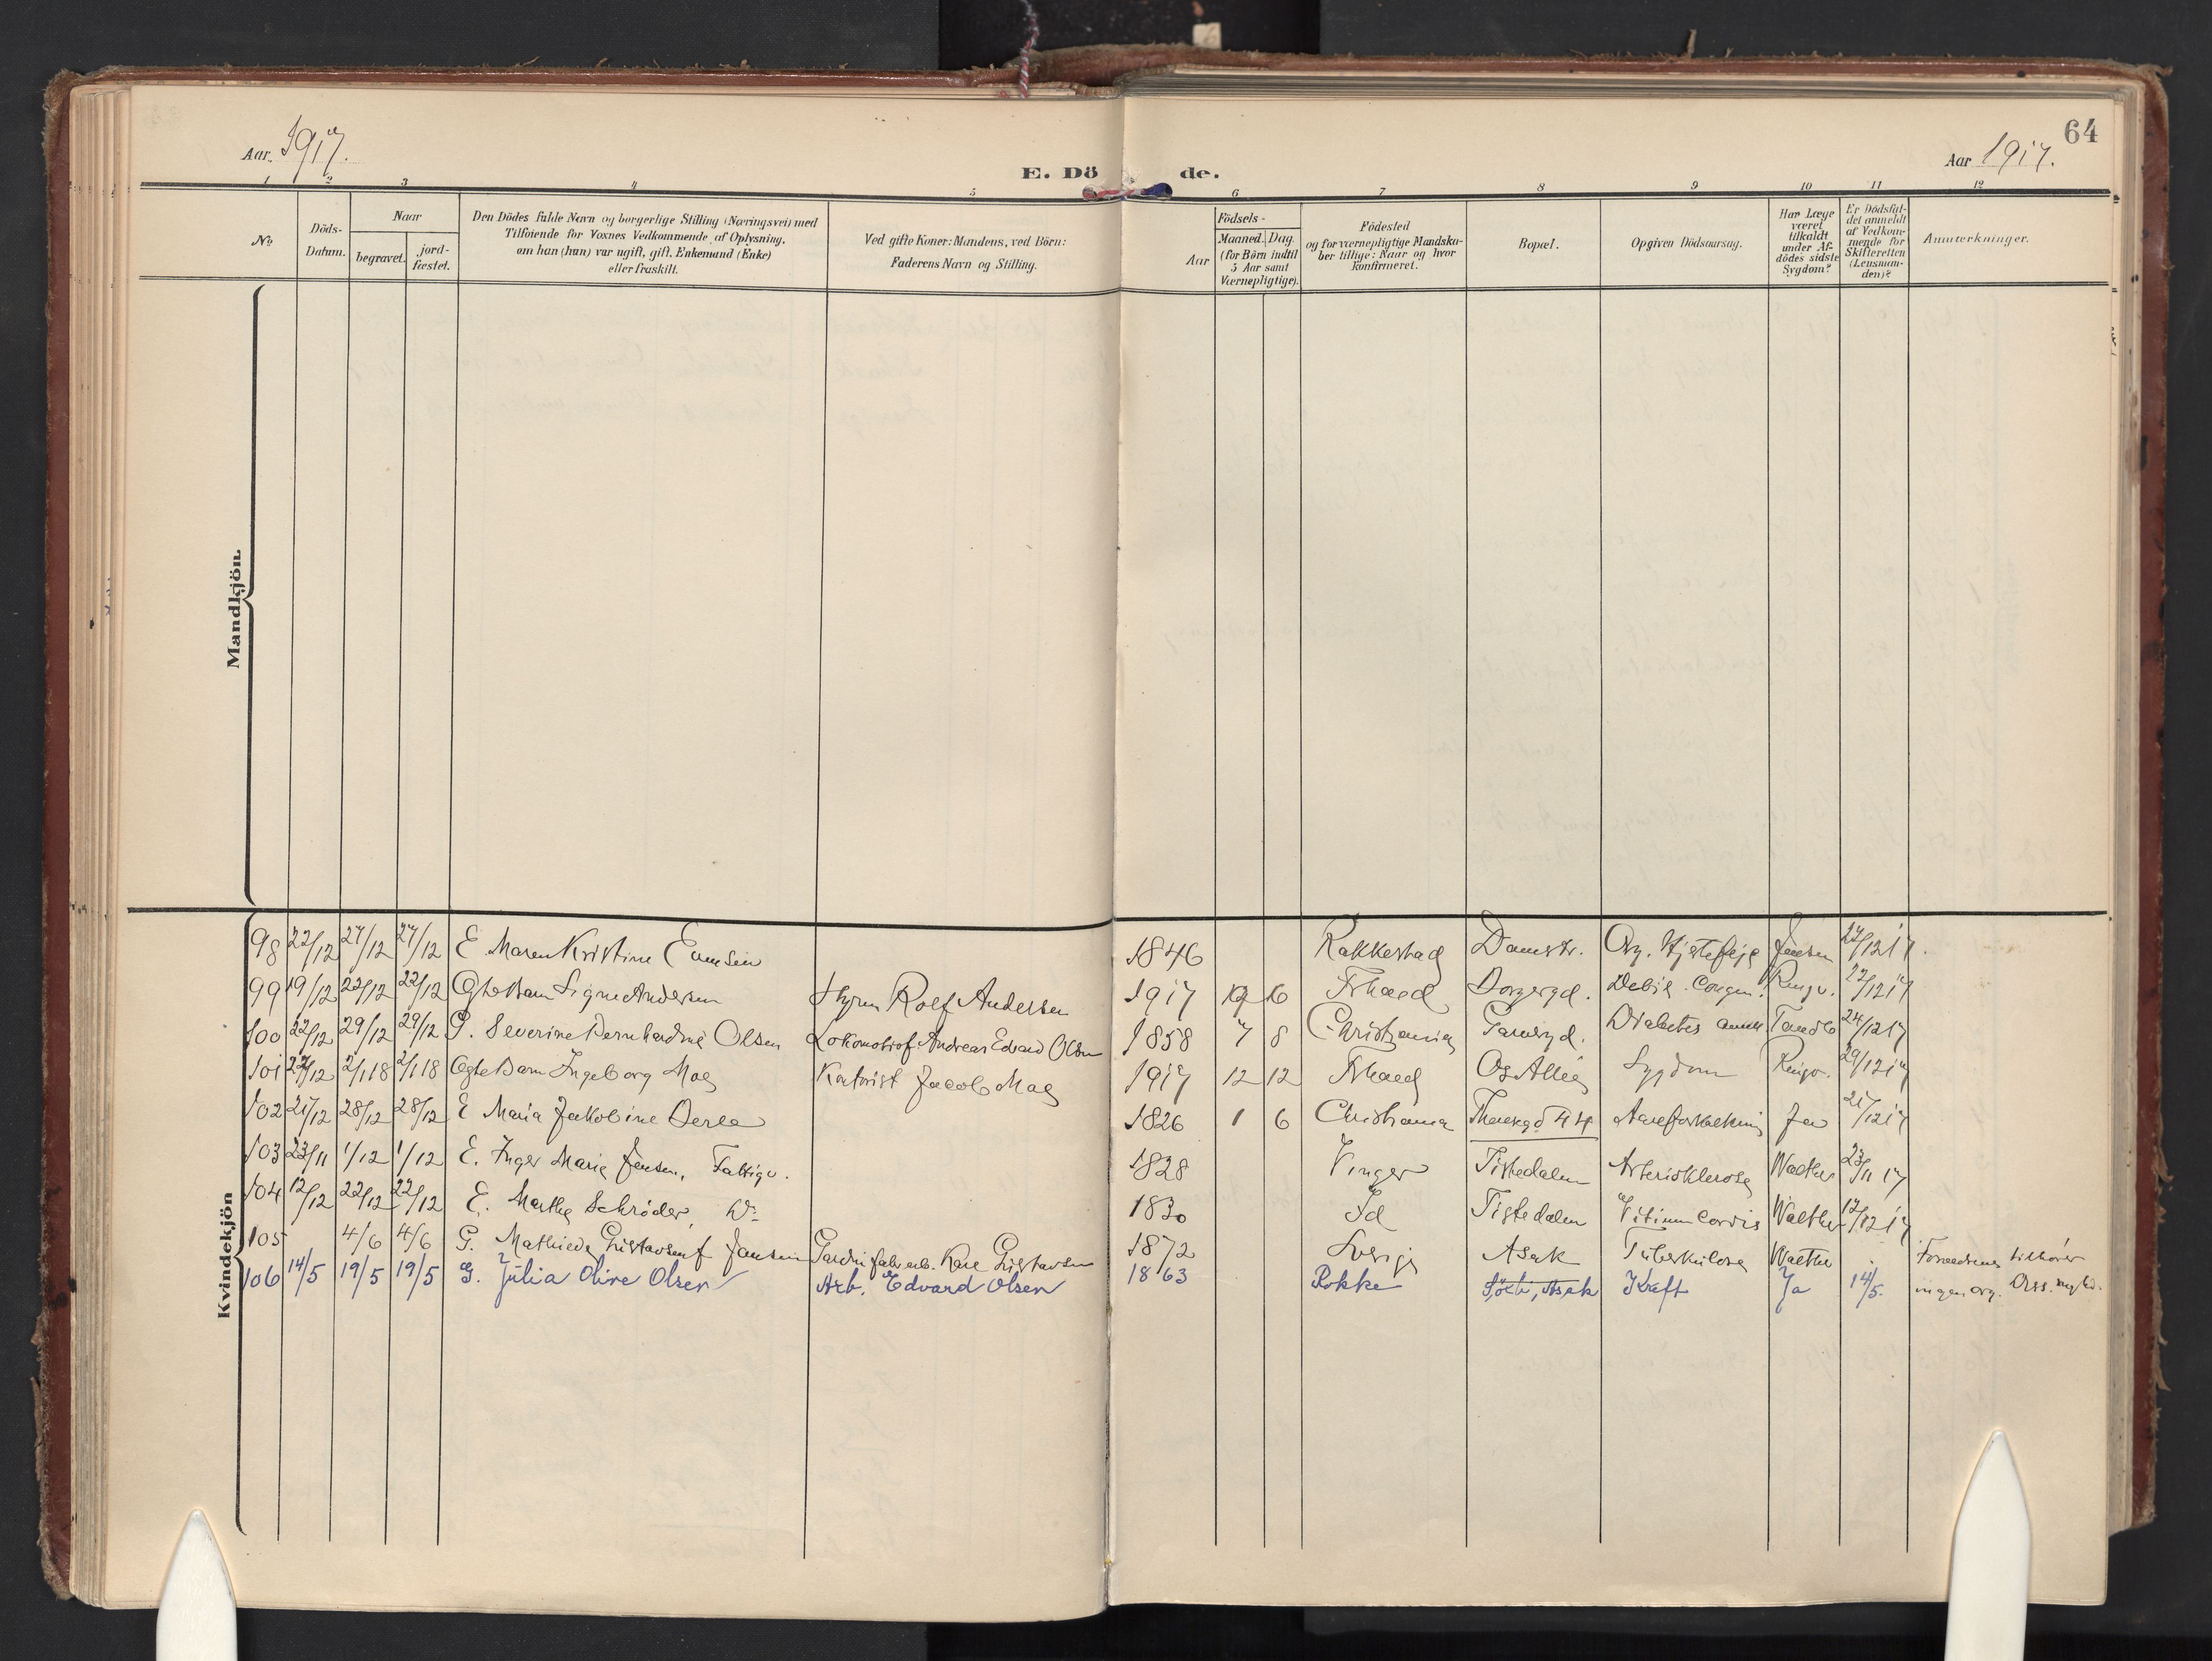 64
Aar 1917.
E. Döde.
Aar 1917.
1 2 3 4 5 6 7 8 9 10 11 12
No.
Döds-Datum.
Naar
begravet.
jord-fæstet.
Den Dödes fulde Navn og borgerlige Stilling (Næringsvei) med
Tilföiende for Voxnes Vedkommende af Oplysning,
om han (hun) var ugift, gift, Enkemand (Enke)
eller fraskilt.
Ved gifte Koner: Mandens, ved Börn:
Faderens Navn og Stilling.
Födsels-
Aar
Maaned. Dag
(for Börn indtil
5 Aar samt
Værnepligtige).
Födested
og for værnepligtige Mandska-
ber tillige: Naar og hvor
konfirmeret.
Bopæl.
Opgiven Dödsaarsag.
Har Læge
været
tilkaldt
under Af-
dödes sidste
Sygdom?
Er Dödsfal-
det anmeldt
af Vedkom-
mende for
Skifteretten
(Lensman-
den)?
Anmærkninger.
Mandkjön.
Kvindekjön
98 22/12 27/12 27/12 E Maren Kristine 1846 Rakkestad Damstr. Org. Hjertefeil Jensen 27/12 17.
99 19/12 22/12 22/12 Ægte Barn Signe Andersen Styrm Rolf Andersen 1917 16 Frhald Borgergd. Debil. Congen. Ringv. 22/12 17
100 22/12 29/12 29/12 G. Severine Bernhardine Olsen Lokomotivf. Andreas Edvard Olsen 1858 7 8 Christiania Diabetes 24/12 17
101 27/12 2/1 18 2/1 18 Ægte Barn Ingeborg Moe Kontorist Jacob Moe 1917 12 12 Frhald Os Allé Sygdom Ringv. 29/12 17
102 21/12 28/12 28/12 E Maria Jakobine 1826 1 6 Christiania 44 Aareforkalkning Ja 21/12 17
103 23/11 1/12 1/12 E. Inger Marie Jensen, Fattigu. 1828 Vinger Tistedalen Arterisklerose Walther 23/11 17
104 12/12 22/12 22/12 E. Marthe Schrøder, Do 1830 Id Tistedalen Vitium Cordis Walther 12/12 17
105 4/6 4/6 G. Mathilde Gustavsen f Jansen Gardinfabarb. Gustavsen 1872 Sverige Asak Tuberkulose Walther Forældrene tilhører
106 14/5 19/5 19/5 G. Julia Olive Olsen Arb. Edvard Olsen 1863 Rokke Asak Kræft Ja 14/5. ingen org.